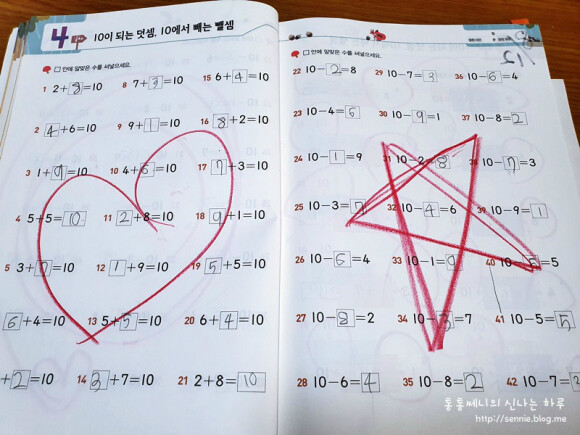 4 10이 되는 덧셈, 10에서 빼는 뺄셈
□ 안에 알맞은 수를 써넣으세요.
1 2+8=10 8 7+3=10 15 6+4=10
2 4+6=10 9 9+1=10 16 8+2=10
3 1+9=10 10 4+6=10 17 7+3=10
4 5+5=10 11 2+8=10 18 9+1=10
5 3+7=10 12 1+9=10 19 5+5=10
6+4=10 13 5+5=10 20 6+4=10
+2=10 14 3+7=10 21 2+8=10
□ 안에 알맞은 수를 써넣으세요.
22 10-2=8 29 10-7=3 36 10-6=4
23 10-4=6 30 10-9=1 37 10-8=2
24 10-1=9 31 10-2=8 38 10-7=3
25 10-3=7 32 10-4=6 39 10-9=1
26 10-6=4 33 10-1=9 40 10-5=5
27 10-8=2 34 10-3=7 41 10-5=5
28 10-6=4 35 10-8=2 42 10-7=
통통쎄니의 신나는 하루
http://sennie.blog.me